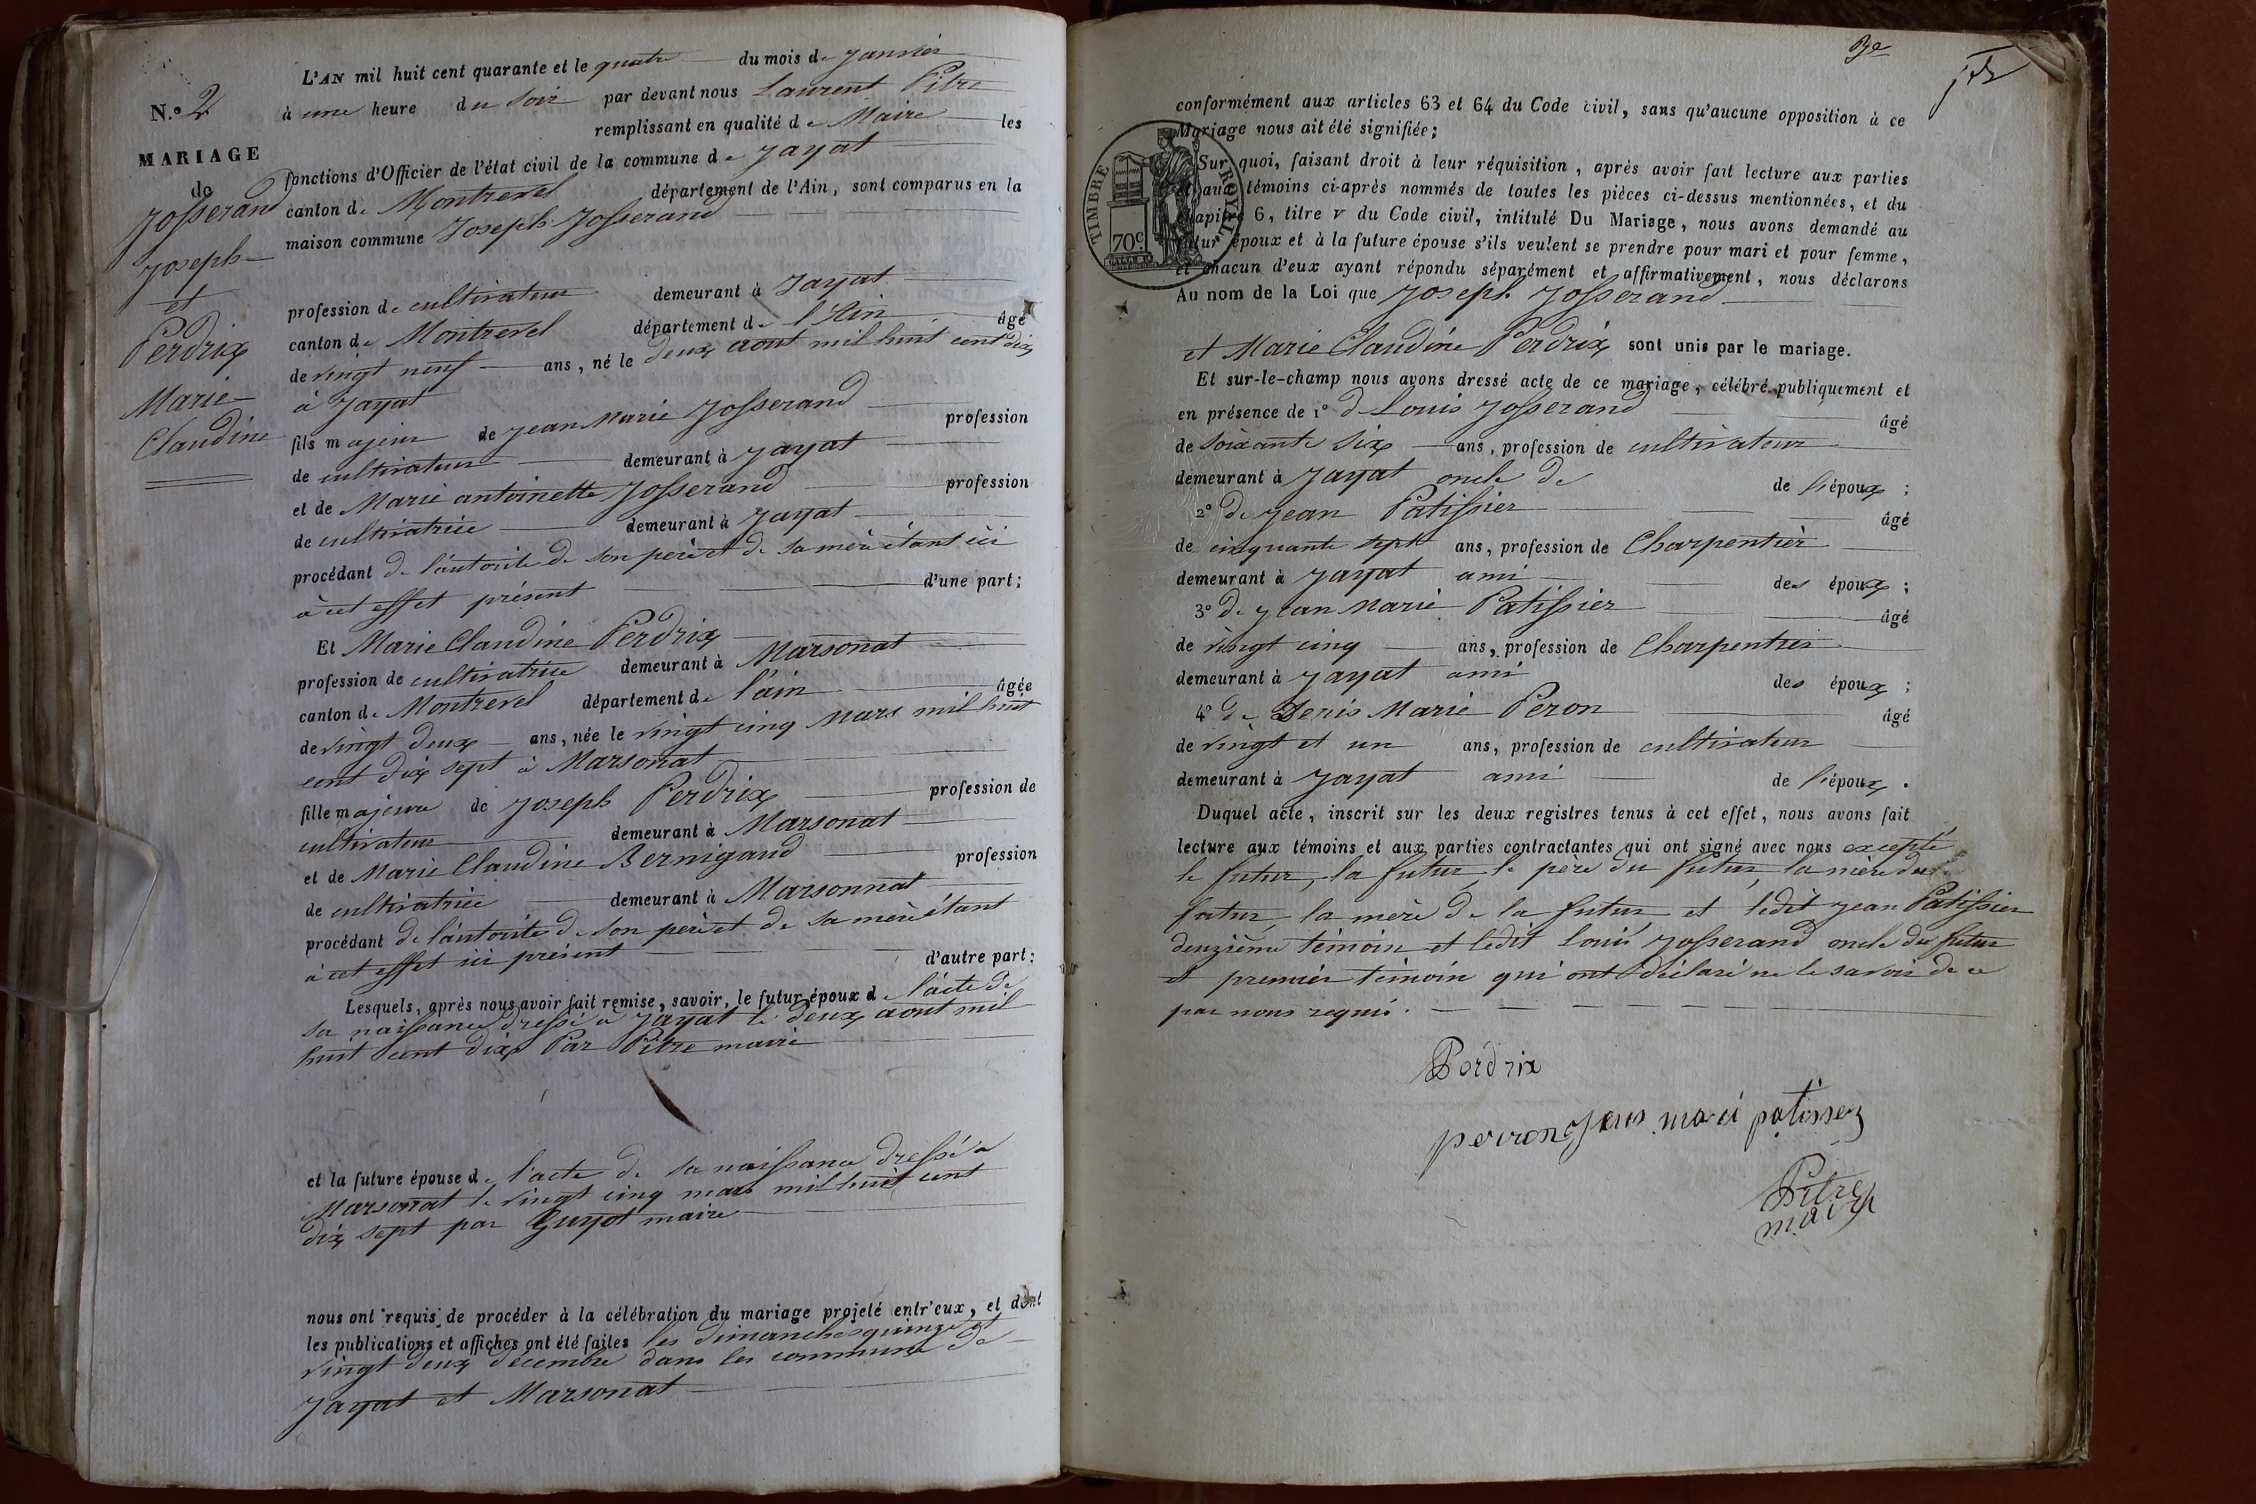 N.º 2
MARIAGE
de
Josserand
Joseph
et
Perdrix
Marie
Claudine
L'AN mil huit cent quarante et le quatre du mois de Janvier
à une heure du soir par devant nous Laurent Pitre
remplissant en qualité de Maire les
fonctions d'Officier de l'état civil de la commune de Jayat
canton de Montrevel département de l'Ain, sont comparus en la
maison commune Joseph Josserand
profession de cultivateur demeurant à Jayat
canton de Montrevel département de l'Ain âgé
de vingt neuf ans, né le deux aout mil huit cent dix
à Jayat
fils majeur de Jean Marie Josserand profession
de cultivateur demeurant à Jayat
et de Marie antoinette Josserand profession
de cultivatrice demeurant à Jayat
procédant de l'autorité de son père et de sa mère étant ici
à cet effet présent d'une part;
Et Marie Claudine Perdrix
profession de cultivatrice demeurant à Marsonat
canton de Montrevel département de l'ain âgée
de vingt deux ans, née le vingt cinq Mars mil huit
cent dix sept à Marsonat
fille majeure de Joseph Perdrix profession de
cultivateur demeurant à Marsonat
et de Marie Claudine Bernigaud profession
de cultivatrice demeurant à Marsonnat
procédant de l'autorité de son père et de sa mère étant
à cet effet ici présent d'autre part;
Lesquels, après nous avoir fait remise, savoir, le futur époux de l'acte de
sa naissance dressé a Jayat le deux aout mil
huit cent dix Par Pitre maire
et la future épouse de l'acte de sa naissance dressé a
Marsonat le vingt cinq mars mil huit cent
dix sept par Guyot maire
nous ont requis de procéder à la célébration du mariage projeté entr'eux, et dont
les publications et affiches ont été faites les dimanches quinze et
vingt deux décembre dans les commune de
Jayat et Marsonat
conformément aux articles 63 et 64 du Code civil, sans qu'aucune opposition à ce
Mariage nous ait été signifiée;
TIMBRE ROYAL
70c
Sur quoi, faisant droit à leur réquisition, après avoir fait lecture aux parties
et aux témoins ci-après nommés de toutes les pièces ci-dessus mentionnées, et du
chapitre 6, titre v du Code civil, intitulé Du Mariage, nous avons demandé au
futur époux et à la future épouse s'ils veulent se prendre pour mari et pour femme,
et chacun d'eux ayant répondu séparément et affirmativement, nous déclarons
Au nom de la Loi que Joseph Josserand
et Marie Claudine Perdrix sont unis par le mariage.
Et sur-le-champ nous avons dressé acte de ce mariage, célébré publiquement et
en présence de 1º de Louis Josserand âgé
de soixante six ans, profession de cultivateur
demeurant à Jayat oncle de de l'époux;
2º de Jean Patissier âgé
de cinquante sept ans, profession de Charpentier
demeurant à Jayat ami des époux;
3º de Jean Marie Patissier âgé
de vingt cinq ans, profession de Charpentier
demeurant à Jayat ami des époux;
4º de Denis Marie Peron âgé
de vingt et un ans, profession de cultivateur
demeurant à Jayat ami de l'époux.
Duquel acte, inscrit sur les deux registres tenus à cet effet, nous avons fait
lecture aux témoins et aux parties contractantes qui ont signé avec nous excepté
le futur, la futur, le père du futur, la mère du
futur, la mère de la futur et ledit Jean Patissier
deuzième témoin et ledit Louis Josserand oncle du futur
et premier témoin qui ont déclaré ne le savoir de ce
par nous requis.
Perdrix
perron Jean mari patissez
Pitre
maire